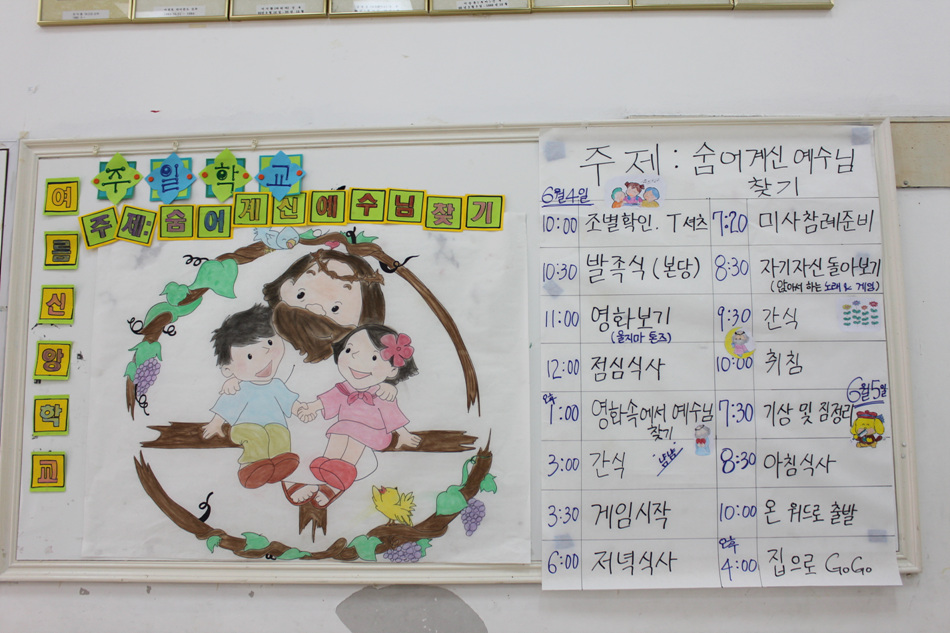 주일학교
주제:숨어계신예수님찾기
여름신앙학교
주제: 숨어계신 예수님
찾기
6월4일
10:00 조별확인. T셔츠
10:30 발족식 (본당)
11:00 영화보기
(울지마 톤즈)
12:00 점심식사
오후 1:00 영화속에서 예수님
찾기
3:00 간식 냠냠
3:30 게임시작
6:00 저녁식사
7:20 미사참례준비
8:30 자기자신돌아보기
(앉아서 하는 노래 & 게임)
9:30 간식
10:00 취침
6월5일
7:30 기상 및 짐정리
8:30 아침식사
10:00 온 위드로 출발
오후 4:00 집으로 GoGo